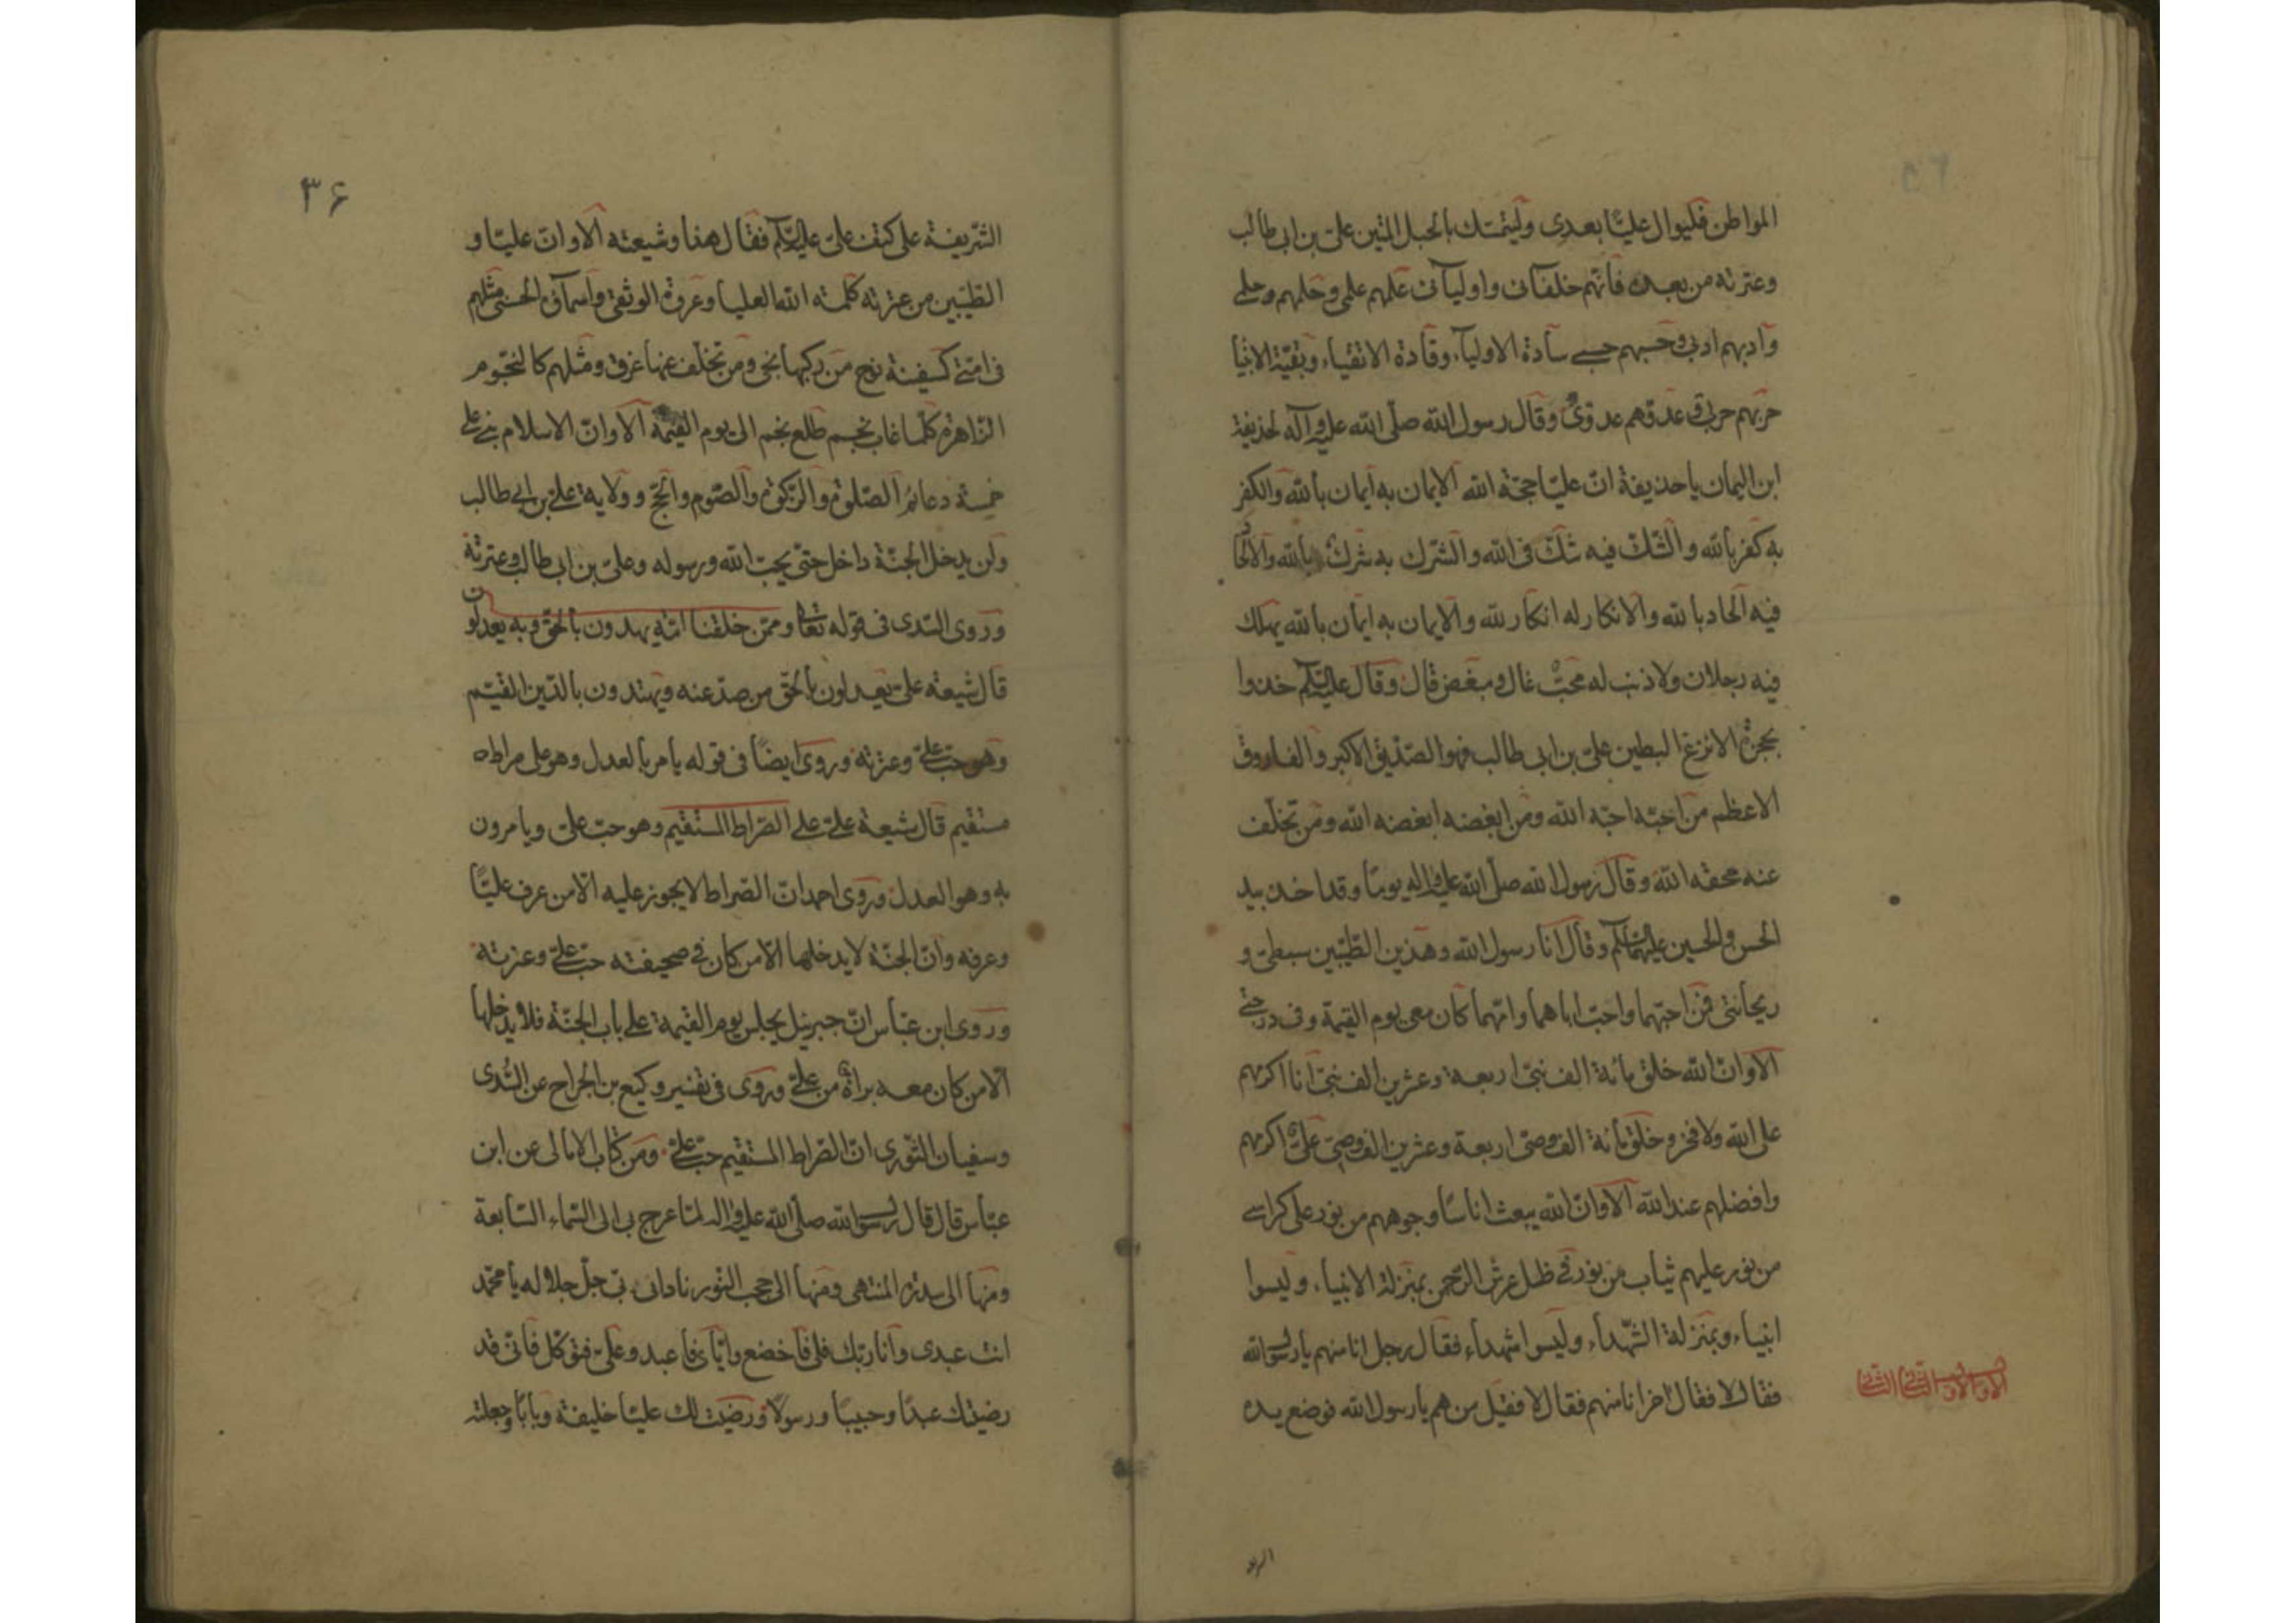 المواطن فليوال عليّا بعدى وليتمسّك بالحبل المتين علىّ بن ابى طالب
وعترته من بعده فانّهم خلفائى واوليائى علمهم علمى وحلمهم وحلمى
وادبهم ادبى وحسبهم حسبى سادة الاولياء، وقادة الاتقياء، وبقيّة الانبيا
حربهم حربى وعدوّهم عدوّى وقال رسول الله صلّى الله عليه وآله لحذيفة
ابن اليمان يا حذيفة انّ عليّا حجّة الله الايمان به ايمان بالله والكفر
به كفر بالله والشّك فيه شكّ فى الله والشّرك به شرك بالله والالحاد
فيه الحاد بالله والانكار له انكار لله والايمان به ايمان بالله يهلك
فيه رجلان ولا ذنب له محبّ غال ومبغض قال وقال عليه السّلم خذوا
بحجزة الانزع البطين علىّ بن ابى طالب فهو الصّدّيق الاكبر والفاروق
الاعظم من احبّه احبّه الله ومن ابغضه ابغضه الله ومن تخلّف
عنه محقه الله وقال رسول الله صلّى الله عليه واله يومًا وقد اخذ بيد
الحسن والحسين عليهما السّلم وقال انا رسول الله وهذين الطّيّبين سبطىّ و
ريحانتى فمن احبّهما واحبّ اباهما وامّهما كان معى يوم القيمة وفى درجتى
الا وانّ الله خلق مائة الف نبىّ اربعة وعشرين الف نبىّ انا اكرمهم
على الله ولا فخر وخلق مائة الف وصىّ اربعة وعشرين الف وصىّ علىّ اكرمهم
وافضلهم عند الله الا وانّ الله يبعث اناسًا وجوههم من نور على كراسى
من نور عليهم ثياب من نور فى ظل عرش الرّحمن بمنزلة الانبياء، وليسوا
انبياء، وبمنزلة الشّهداء، وليسوا شهداء، فقال رجل انا منهم يا رسول الله
فقال لا فقال اخر انا منهم فقال لا فقيل من هم يا رسول الله فوضع يده
٣۶
الشّريفة على كتف علىّ عليه السّلم فقال هذا وشيعته الا وانّ عليّا و
الطّيّبين من عترته كلمة الله العليا وعروة الوثقى واسمائه الحسنى مثلهم
فى امّتى كسفينة نوح من ركبها نجى ومن تخلّف عنها غرق ومثلهم كالنّجوم
الزّاهرة كلّما غاب نجم طلع نجم الى يوم القيمة الا وانّ الاسلام بنى على
خمسة دعائم الصّلوة والزّكوة والصّوم والحجّ وولاية علىّ بن ابى طالب
ولن يدخل الجنّة داخل حتّى يحبّ الله ورسوله وعلىّ بن ابى طالب وعترته
وروى السّدى فى قوله تعالى وممّن خلقنا امّة يهدون بالحقّ وبه يعدلون
قال شيعة علىّ يعدلون بالحقّ من صدّ عنه ويهتدون بالدّين القيّم
وهو حبّ علىّ وعترته وروى ايضًا فى قوله يأمر بالعدل وهو على صراط
مستقيم قال شيعة علىّ على الصّراط المستقيم وهو حبّ علىّ ويامرون
به وهو العدل وروى احمد انّ الصّراط لا يجوز عليه الّا من عرف عليّا
وعرفه وانّ الجنّة لا يدخلها الّا من كان فى صحيفته حبّ علىّ وعترته
وروى ابن عبّاس انّ جبرئيل يجلس يوم القيمة على باب الجنّة فلا يدخلها
الّا من كان معه براة من علىّ وروى فى تفسير وكيع بن الجراح عن السّدى
وسفيان الثّورى انّ الصّراط المستقيم حبّ علىّ ومن كتاب الامالى عن ابن
عبّاس قال قال رسول الله صلّى الله عليه واله لمّا عرج بى الى السّماء، السّابعة
ومنها الى سدرة المنتهى ومنها الى حجب النّور نادانى ربّى جلّ جلاله يا محمّد
انت عبدى وانا ربّك فلى فاخضع وايّاى فاعبد وعلىّ فتوكّل فانّى قد
رضيتك عبدًا وحبيبًا ورسولًا ورضيت لك عليّا خليفة وبابًا وجعلته